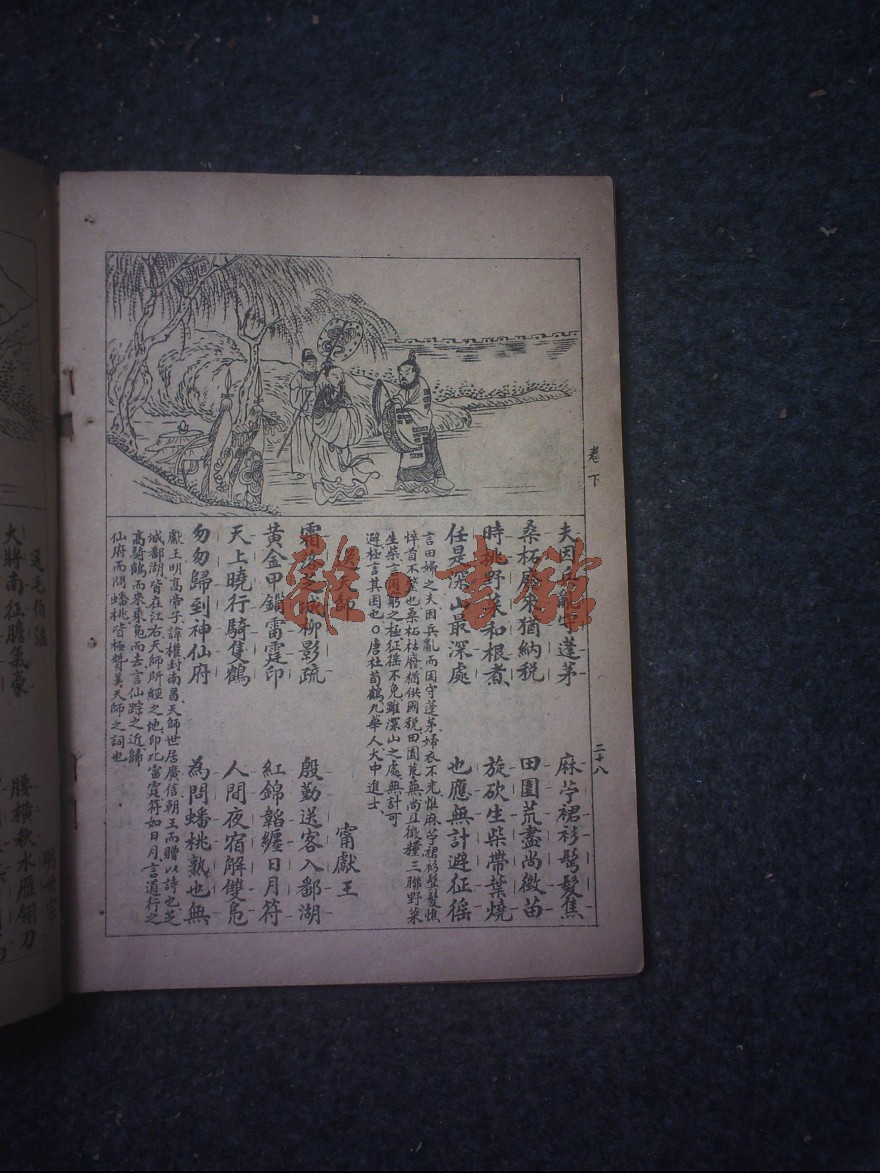 卷下
二十八
夫因兵亂守蓬茅 麻苧裙衫鬓髮焦
桑柘廢來猶納税 田園荒盡尚徵苗
時挑野菜和根煮 旋砍生柴帶葉燒
任是深山最深處 也應無計避征徭
言田婦之夫因兵亂而困守蓬茅婦衣不充惟麻苧裙衫鬓髮憔
悴首不整也桑柘枯廢猶供國税田園荒蕪尚且徵糧三聯野菜
生柴言困窮之極征徭不免雖深山之處無計可
避極言其困也〇唐杜荀鶴九華人大中進士
送天師 甯獻王
霜落芝城柳影疏 殷勤送客入鄱湖
黄金甲鎖雷霆印 紅錦韜纏日月符
天上曉行騎隻鶴 人間夜宿解雙凫
匆匆歸到神仙府 為問蟠桃熟也無
獻王明高帝子諱權封南昌天師世居廣信朝王而贈以詩也芝
城鄱湖皆在江右天師所經之地印比雷霆符如日月言道行之
高騎鶴而來乘凫而去言仙踪之近歸
仙府而問蟠桃皆極贊美天師之詞也
送毛伯温 明世宗
大將南征膽氣豪 腰横秋水雁翎刀
雜·書館